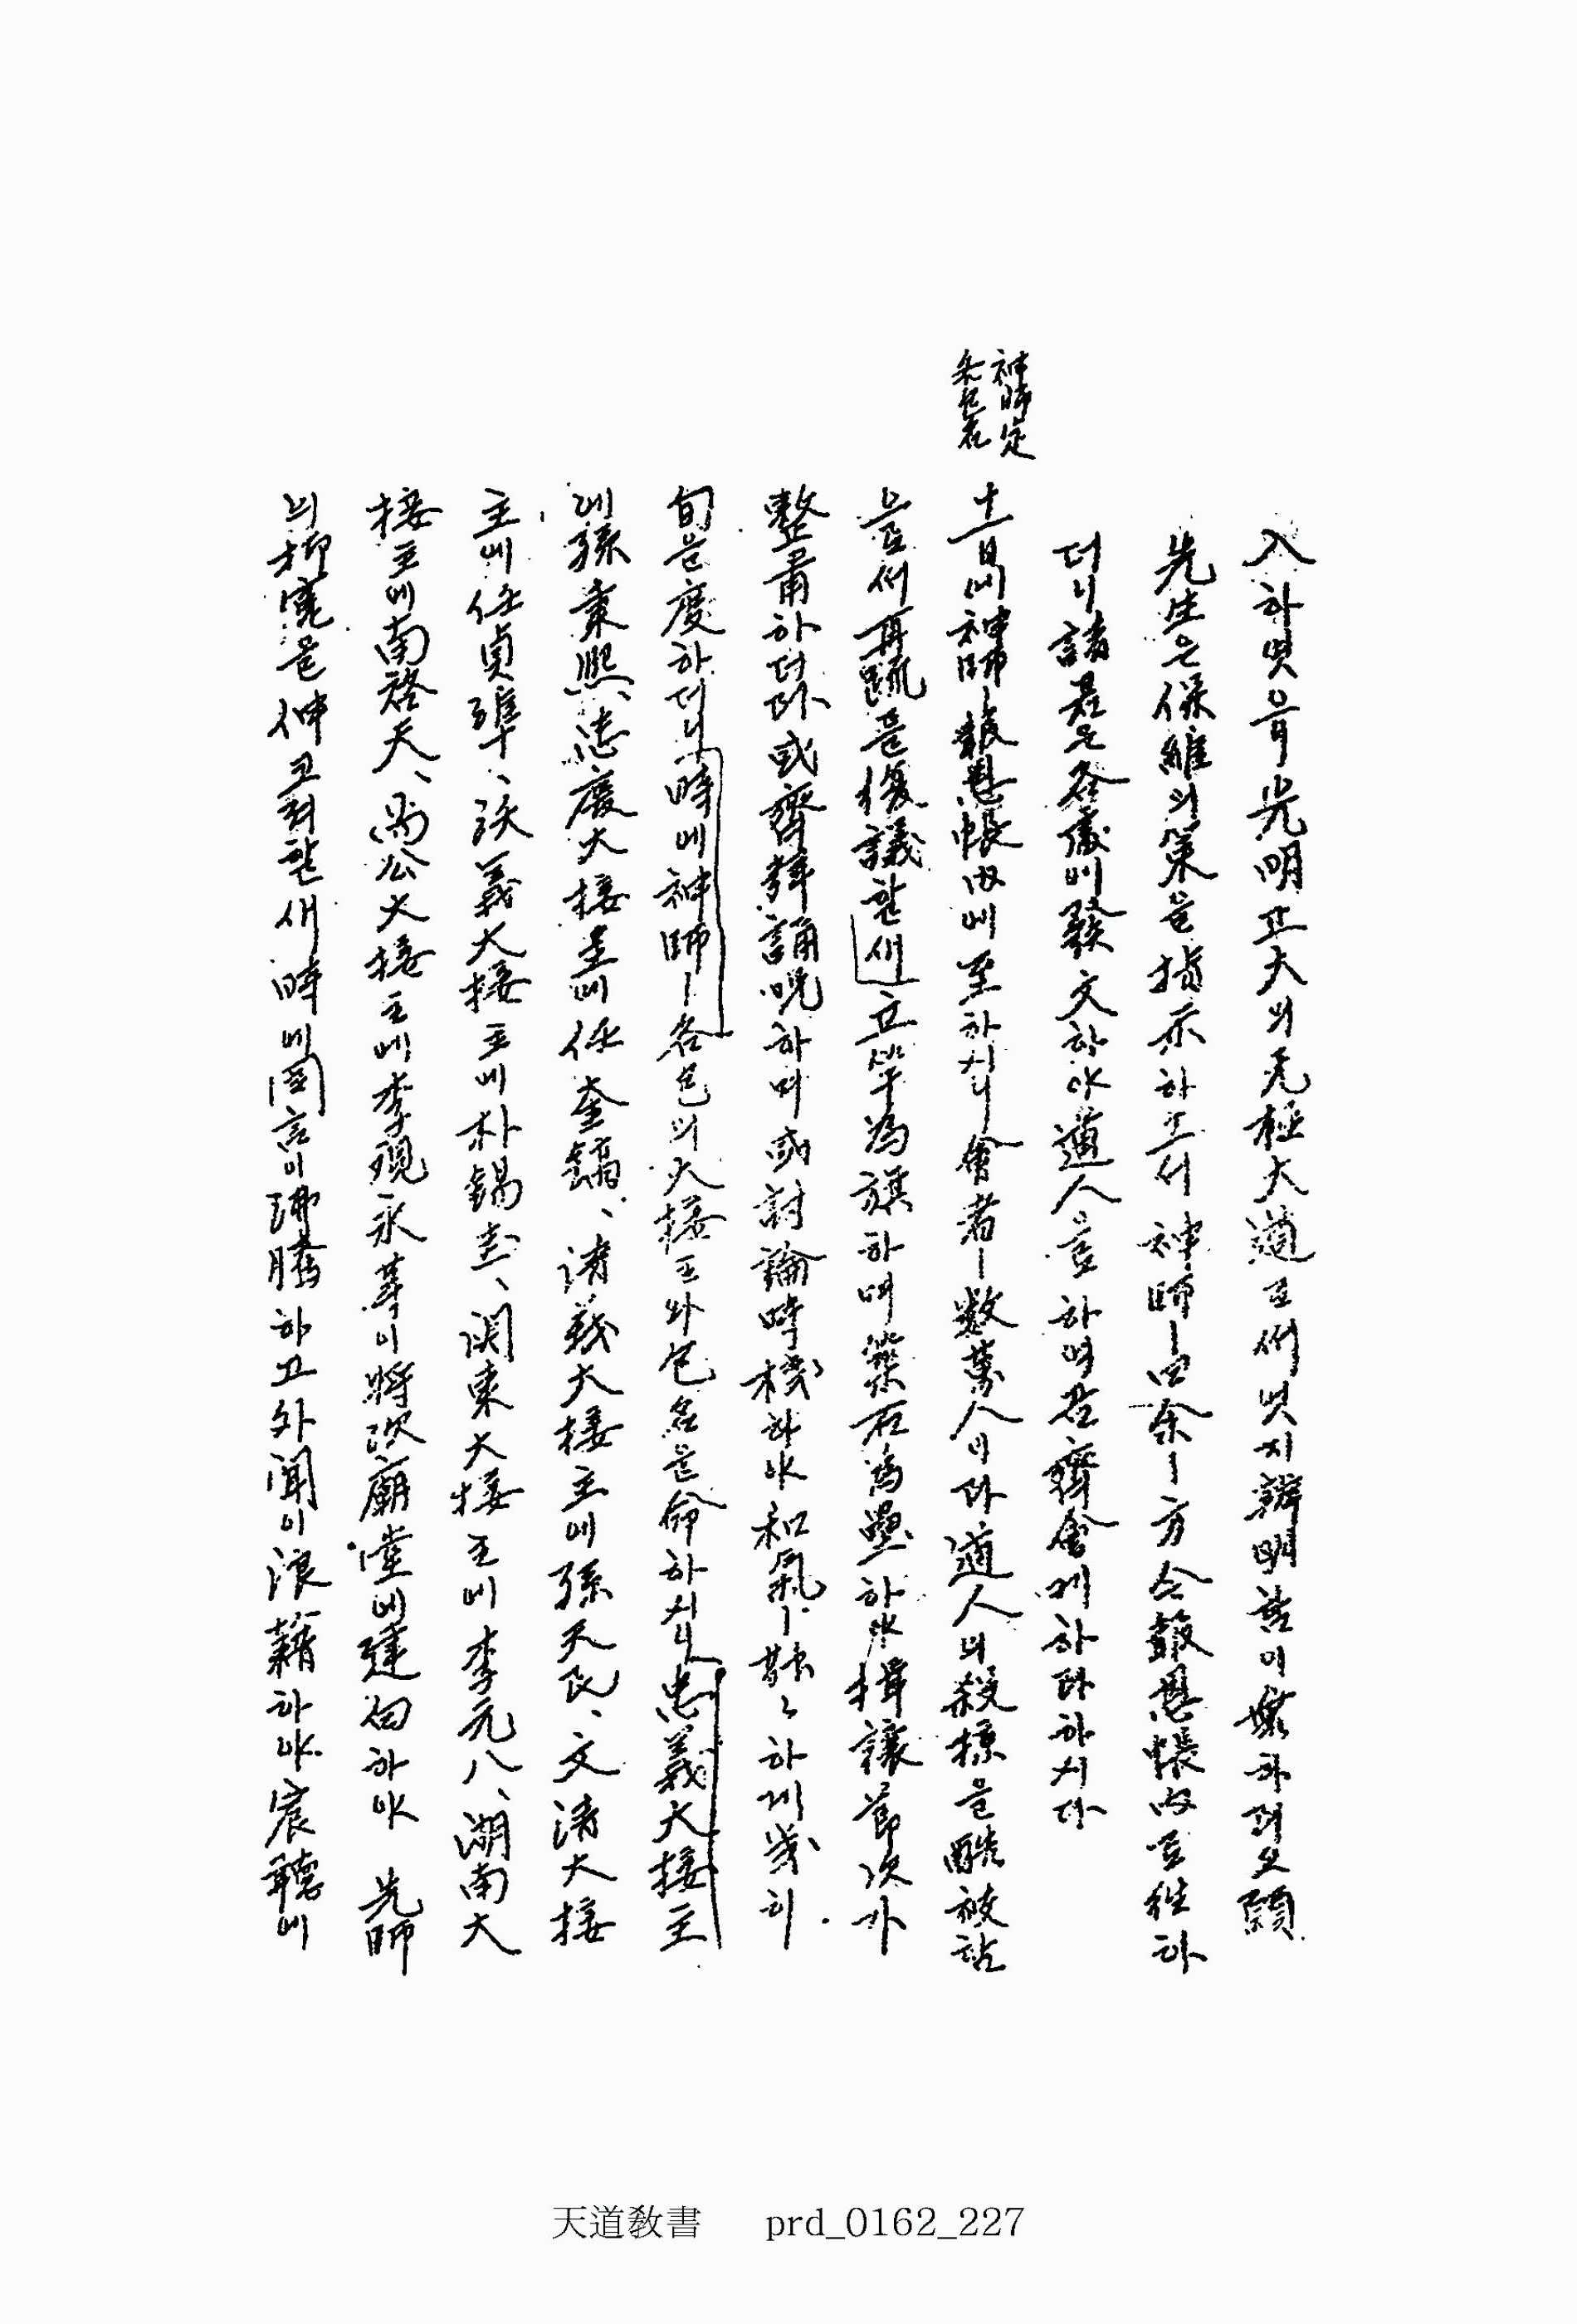 入하엿은즉 光明正大의 无極大道로써 엇지 辨明함이 無하리오 願
先生은 保維의 策을 指示하소셔 神師ㅣ曰余ㅣ方今報恩帳內로 徃하
더니 諸君은 各處에 發文하야 道人을 하여곰 齊會케하라하시다
神師定
各包名
十一日에 神師ㅣ報恩帳內에 至하시니 會者ㅣ數萬人이라 道人의 殺掠을 酷被함
으로써 再䟽를 復議할새 立竿為旗하며 築石為壘하야 揖讓節次가
整肅하더라 或齊聲誦呪하며 或討論時機하야 和氣ㅣ融々하게 幾히
旬을 度하더니 時에 神師ㅣ各包의 大接主와 包名을 命하시니 忠義大接主
에 孫秉熙、忠慶大接主에 任奎鎬、淸義大接主에 孫天民、文淸大接
主에 任貞準、沃義大接主에 朴錫圭、関東大接主에 李元八、湖南大
接主에 南啓天、尙公大接主에 李觀永等이 將次廟堂에 建白하야 先師
의 抑寃을 伸코져할새 時에 訛言이 沸騰하고 外聞이 浪藉하야 宸聽에
天道敎書 prd_0162_227